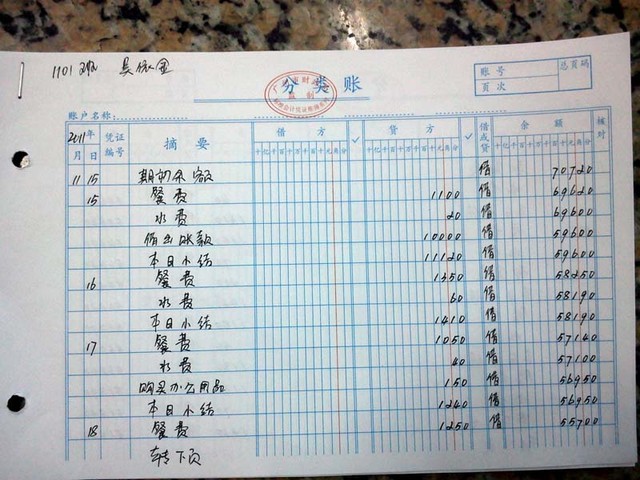 1101 吴
分类账
账号 总页码
页次
账户名称:
2011年 凭证编号 摘要 借方 ✓ 贷方 ✓ 借或贷 余额 核对
月 日 十亿千百十万千百十元角分 十亿千百十万千百十元角分 十亿千百十万千百十元角分
11 15 期初余额 借 70720
15 餐费 1100 借 69620
水费 20 借 69600
借出账款 10000 借 59600
本日小结 11120 借 59600
16 餐费 1350 借 58250
水费 60 借 58190
本日小结 1410 借 58190
17 餐费 1050 借 57140
水费 40 借 57100
购买办公用品 150 借 56950
本日小结 1240 借 56950
18 餐费 1250 借 55700
转下页